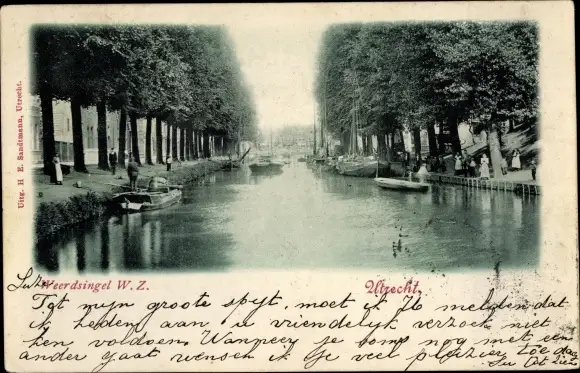 Uitg. H. E. Sandtmann, Utrecht.
Weerdsingel W. Z. Utrecht.
Tot mijn groote spijt, moet ik Je melden dat
ik heden aan u vriendelijk verzoek niet
ken voldoen. Wanneer je soms nog met een
ander gaat wensen ik Je veel pleizier